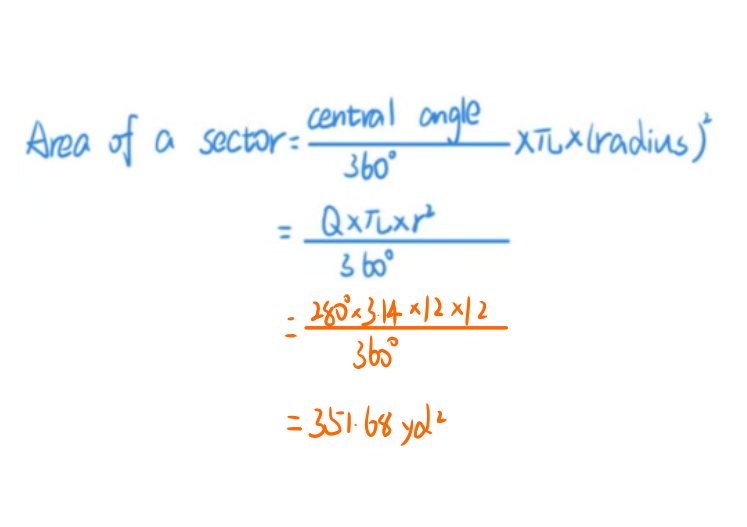 Area of a sector = central angle / 360° × π × (radius)²
= Q × π × r² / 360°
= 280° × 3.14 × 12 × 12 / 360°
= 351.68 yd²